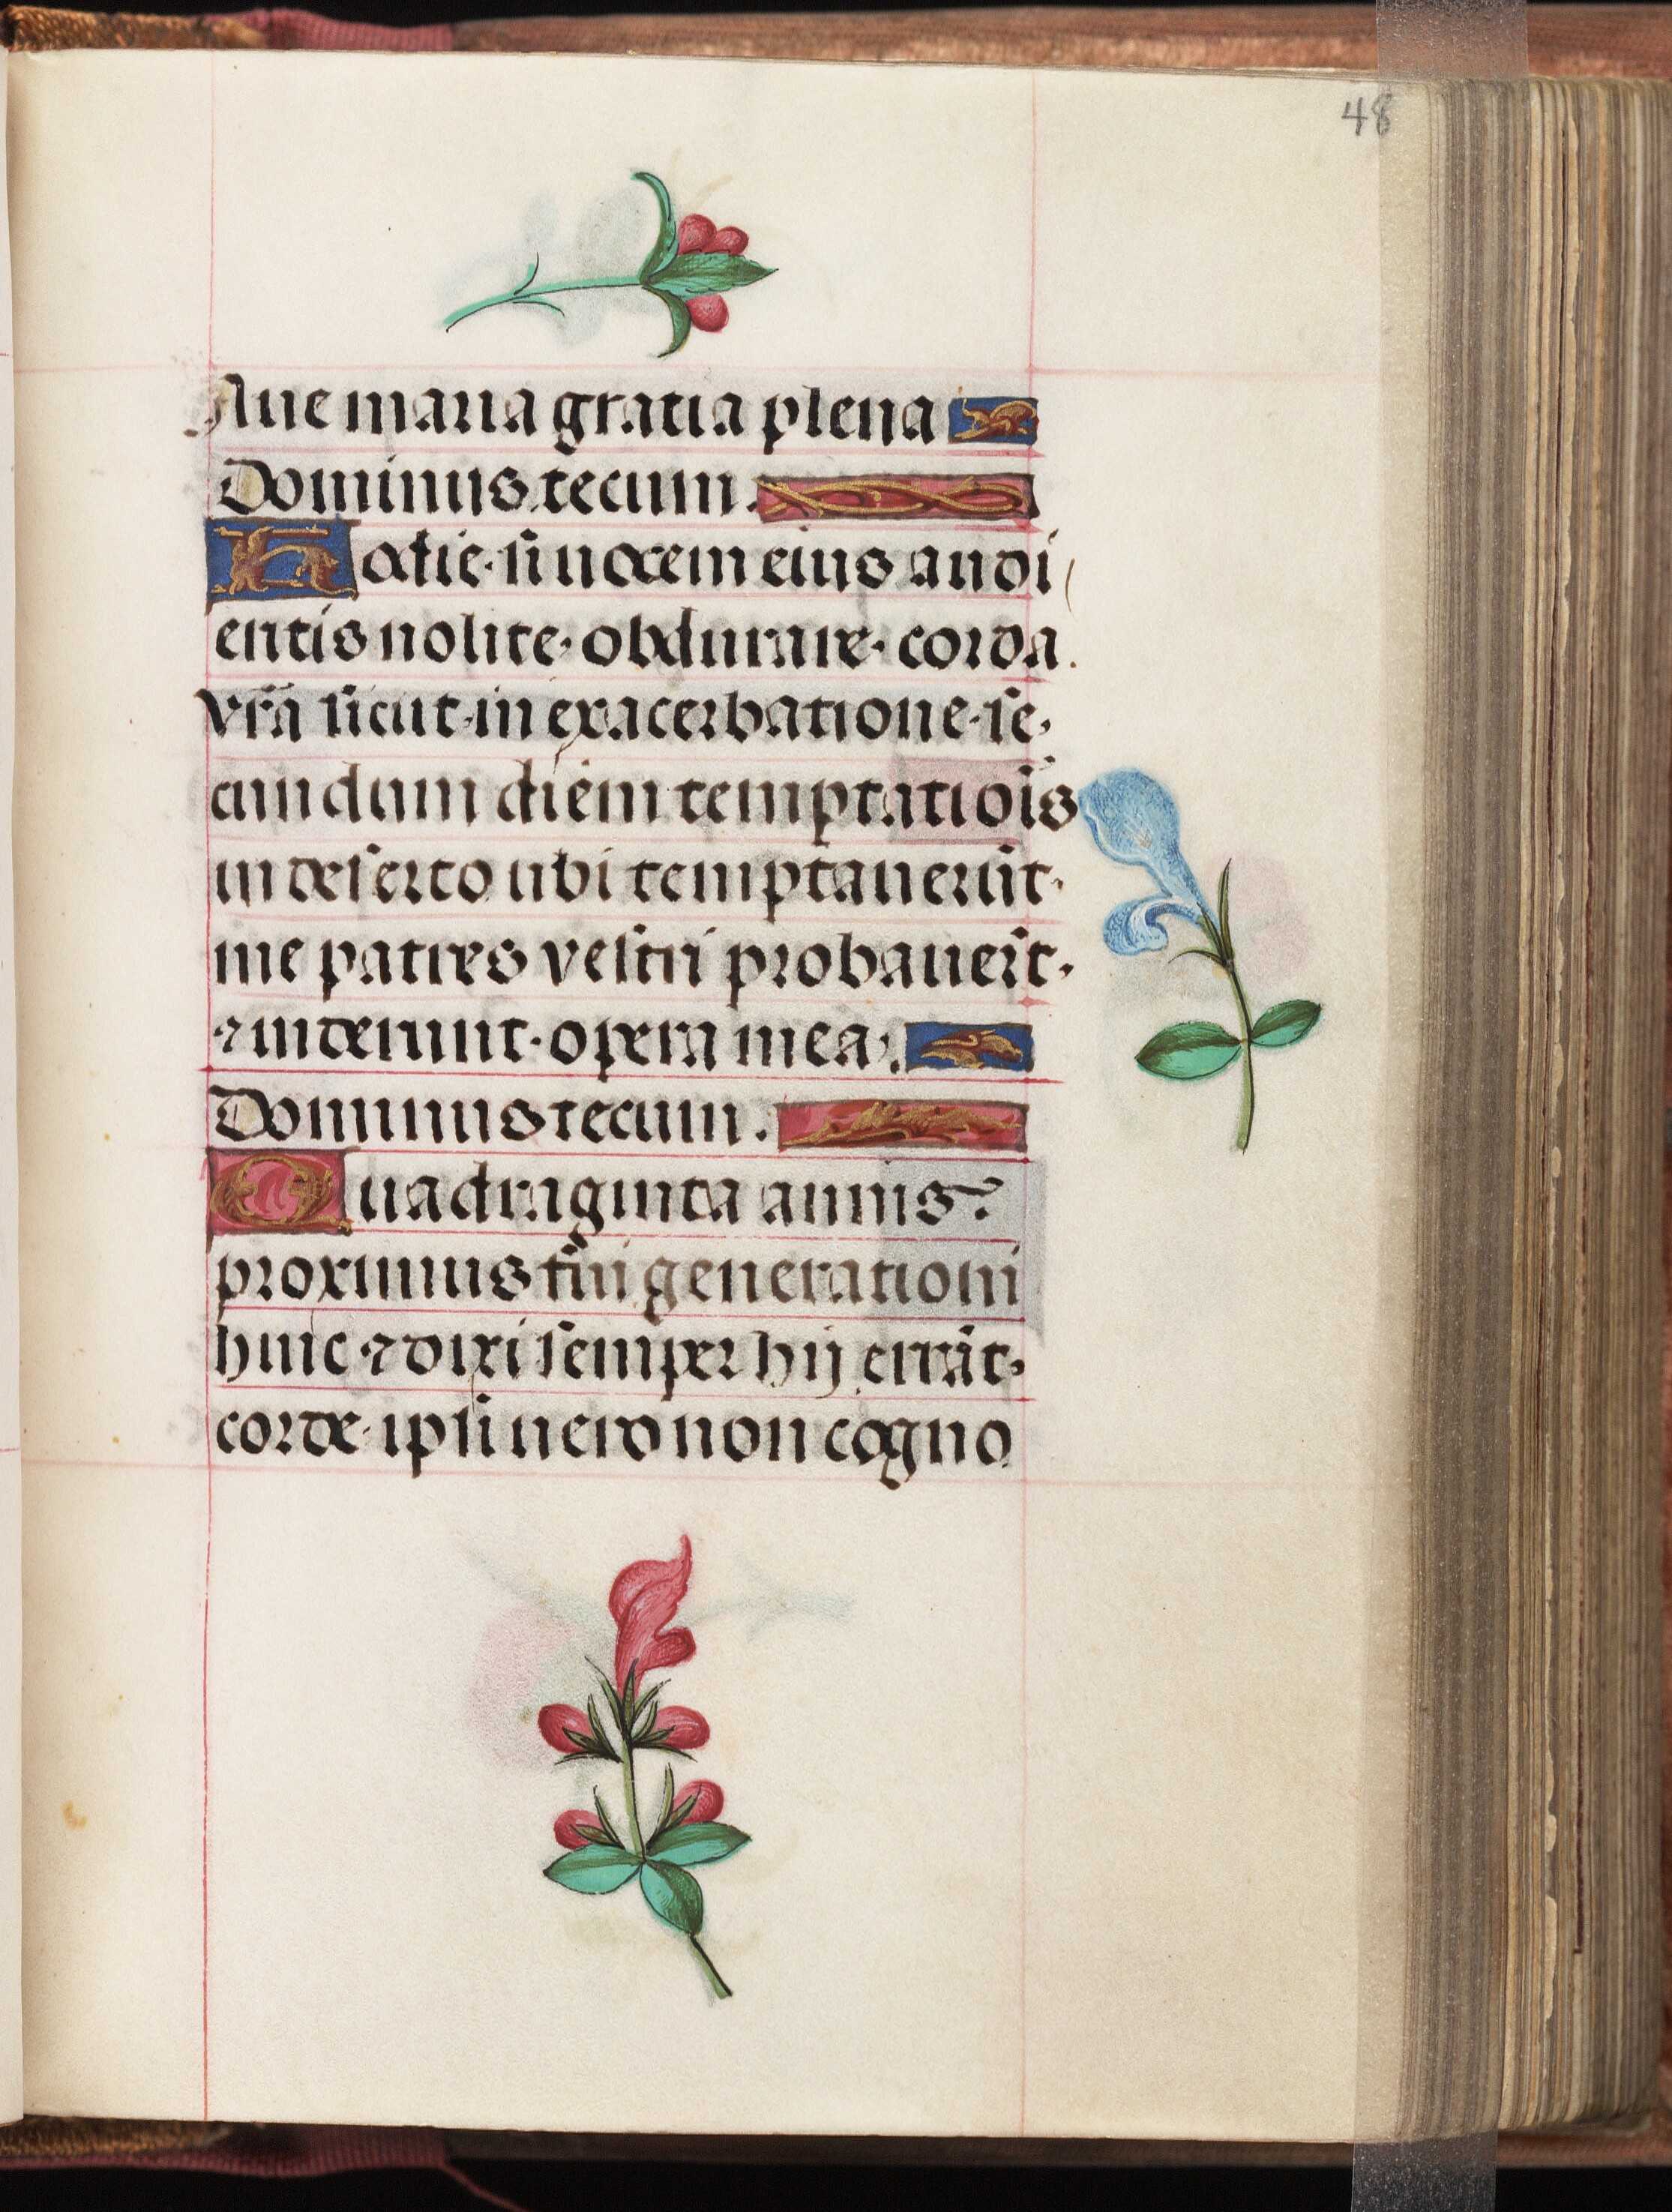 48
Aue maria gratia plena
Dominus tecum.
Hodie si uocem eius audi
entis nolite obdurare corda.
vr̃a sicut in exacerbatione se
cundum diem temptatiõis
in deserto ubi temptauerũt
me patres vestri probauer̃t
⁊ uiderunt opera mea.
Dominus tecum.
Quadraginta annis
proximus fui generationi
huic ⁊ dixi semper hij errãt
corde ipsi uero non cogno